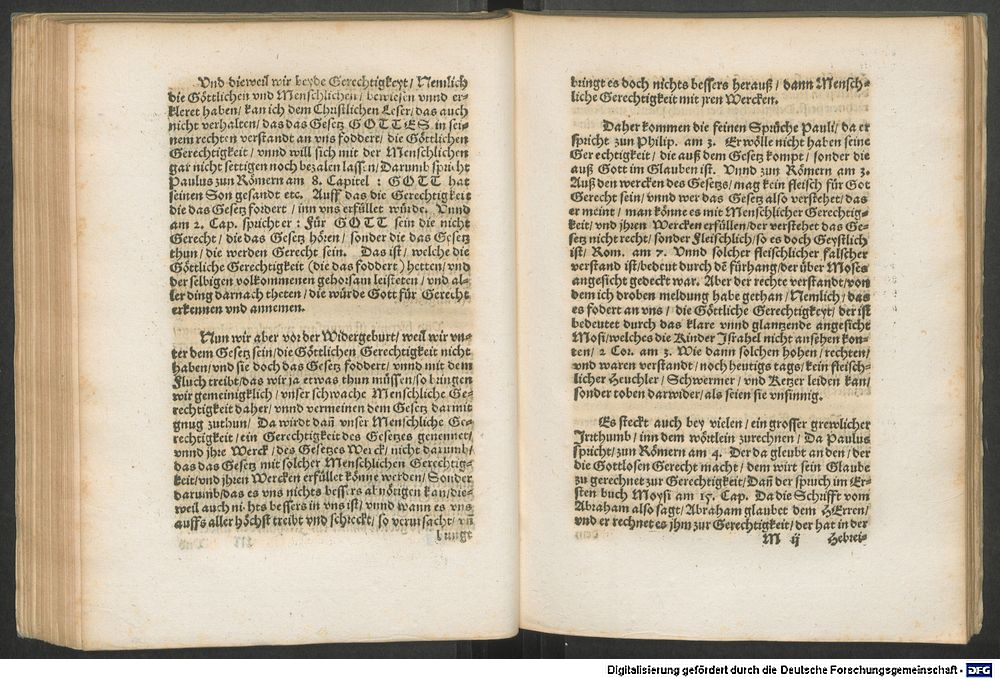 Vnd dieweil wir beyde Gerechtigkeyt / Nemlich
die Göttlichen vnd Menschlichen / bewiesen vnnd er-
kleret haben / kan ich dem Christlichen Leser / das auch
nicht verhalten / das das Gesetz GOTTES in sei-
nem rechten verstandt an vns foddert / die Göttlichen
Gerechtigkeit / vnnd will sich mit der Menschlichen
gar nicht settigen noch bezalen lassen / Darumb spricht
Paulus zun Römern am 8. Capitel : GOTT hat
seinen Son gesandt etc. Auff das die Gerechtigkeit
die das Gesetz fordert / inn vns erfüllet würde. Vnnd
am 2. Cap. spricht er : Für GOTT sein die nicht
Gerecht / die das Gesetz hören / sonder die das Gesetz
thun / die werden Gerecht sein. Das ist / welche die
Göttliche Gerechtigkeit (die das foddert) hetten / vnd
der selbigen volkommenen gehorsam leisteten / vnd al-
ler ding darnach theten / die würde Gott für Gerecht
erkennen vnd annemen.
Nun wir aber vor der Widergeburt / weil wir vn-
ter dem Gesetz sein / die Göttlichen Gerechtigkeit nicht
haben / vnd sie doch das Gesetz foddert / vnnd mit dem
Fluch treibt / das wir ja etwas thun müssen / so bringen
wir gemeinigklich / vnser schwache Menschliche Ge-
rechtigkeit daher / vnnd vermeinen dem Gesetz darmit
gnug zuthun / Da wirdt dañ vnser Menschliche Ge-
rechtigkeit / ein Gerechtigkeit des Gesetzes genennet /
vnnd jhre Werck / des Gesetzes Werck / nicht darumb /
das das Gesetz mit solcher Menschlichen Gerechtig-
keit / vnd jhren Wercken erfüllet könne werden / Sonder
darumb / das es vns nichts bessers abnörigen kan / die-
weil auch nichts bessers in vns ist / vnnd wann es vns
auffs aller höchst treibt vnd schreckt / so verursacht / vñ
bringt
bringt es doch nichts bessers herauß / dann Mensch-
liche Gerechtigkeit mit jren Wercken.
Daher kommen die feinen Sprüche Pauli / da er
spricht zun Philip. am 3. Er wölle nicht haben seine
Gerechtigkeit / die auß dem Gesetz kompt / sonder die
auß Gott im Glauben ist. Vnnd zun Römern am 3.
Auß den wercken des Gesetzs / mag kein fleisch für Got
Gerecht sein / vnnd wer das Gesetz also verstehet / das
er meint / man könne es mit Menschlicher Gerechtig-
keit / vnd jhren Wercken erfüllen / der verstehet das Ge-
setz nicht recht / sonder Fleischlich / so es doch Geystlich
ist / Rom. am 7. Vnnd solcher fleischlicher falscher
verstand ist / bedeut durch dē fürhang / der über Moses
angesicht gedeckt war. Aber der rechte verstandt / von
dem ich droben meldung habe gethan / Nemlich / das
es fodert an vns / die Göttliche Gerechtigkeyt / der ist
bedeutet durch das klare vnnd glantzende angesicht
Mosi / welches die Kinder Israhel nicht ansehen kon-
ten / 2 Cor. am 3. Wie dann solchen hohen / rechten /
vnd waren verstandt / noch heutigs tags / kein fleisch-
licher Heuchler / Schwermer / vnd Ketzer leiden kan /
sonder toben darwider / als seien sie vnsinnig.
Es steckt auch bey vielen / ein grosser grewlicher
Jrrthumb / inn dem wörtlein zurechnen / Da Paulus
spricht / zun Römern am 4. Der da gleubt an den / der
die Gottlosen Gerecht macht / dem wirt sein Glaube
zu gerechnet zur Gerechtigkeit / Dañ der spruch im Er-
sten buch Moysi am 15. Cap. Da die Schrifft vom
Abraham also sagt / Abraham glaubet dem HErren /
vnd er rechnet es jhm zur Gerechtigkeit / der hat in der
M ij Hebrei-
Digitalisierung gefördert durch die Deutsche Forschungsgemeinschaft - DFG